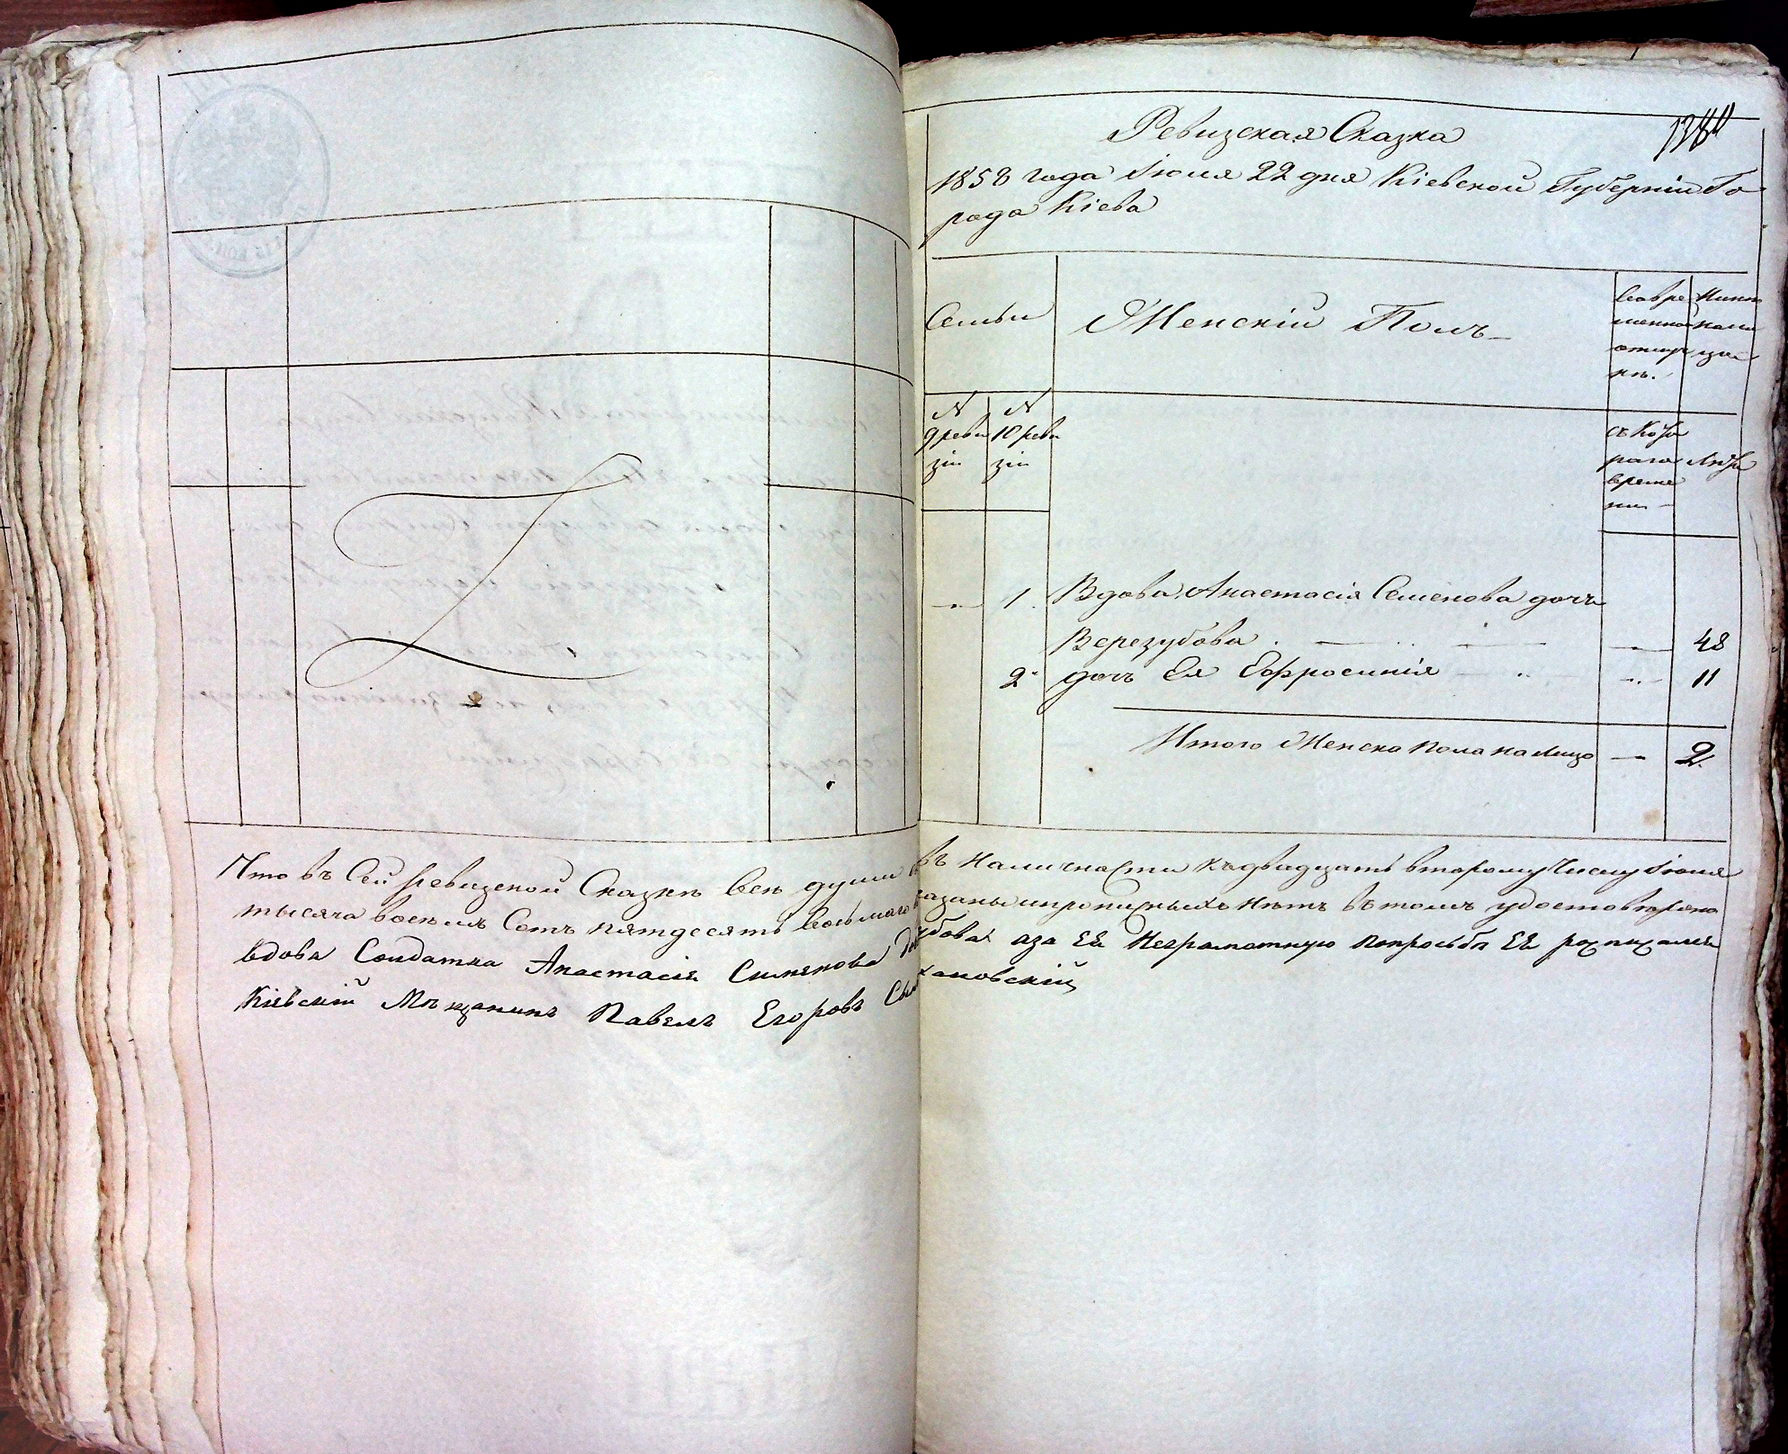 Ревизская Сказка
1858 года Іюля 22 дня Кіевской Губерніи Го
рода Кіева
Семьи
Женскій Полъ
Во вре
менной
отлуч
кѣ.
Ныне
на ли
цо
N
9 реви
зіи
N
10 реви
зіи
съ кото
раго
време
ни
Лета
1. Вдова Анастасія Семенова дочь
Верезубова 48
2. дочь Ея Ефросинія 11
Итого Женска пола на лицо 2.
Что въ Сей ревизской Сказкѣ всѣ души въ наличности къ двадцать второму Числу Іюля
тысяча восемь Сотъ пятдесятъ восьмаго показаны и прописныхъ нѣтъ въ томъ удостовѣряю
вдова Солдатка Анастасія Симянова аза Её Неграмотную попрозьбѣ Её
Кіевскій Мѣщанинъ Павелъ Егоровъ